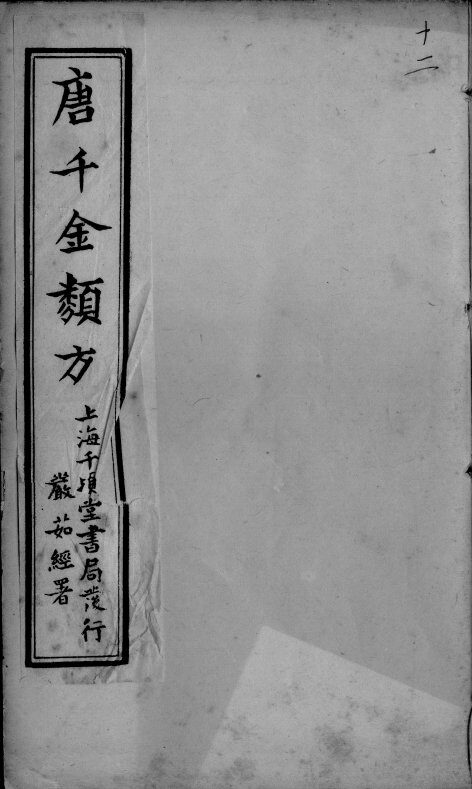 十二
唐千金類方
上海千頃堂書局發行
嚴茹經署